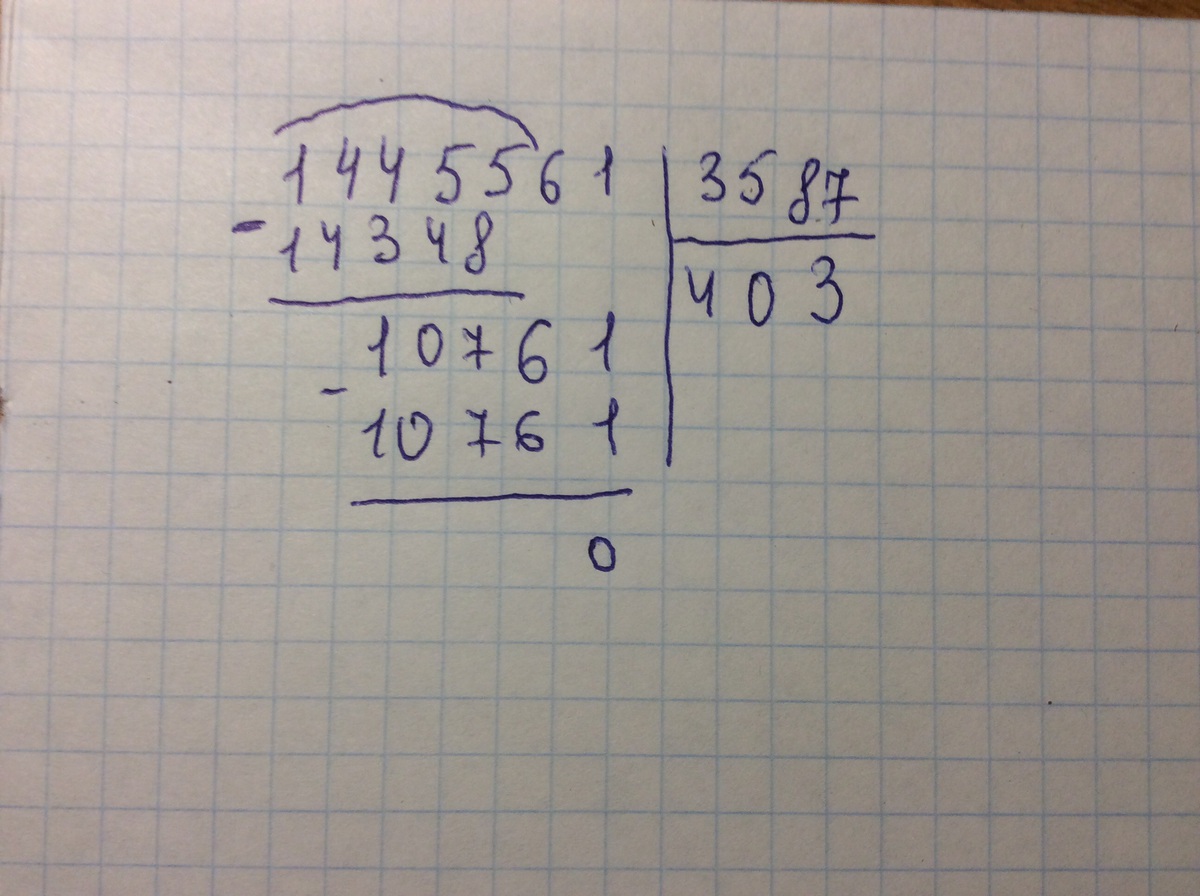 1445561 3587
-14348 403
10761
-10761
0